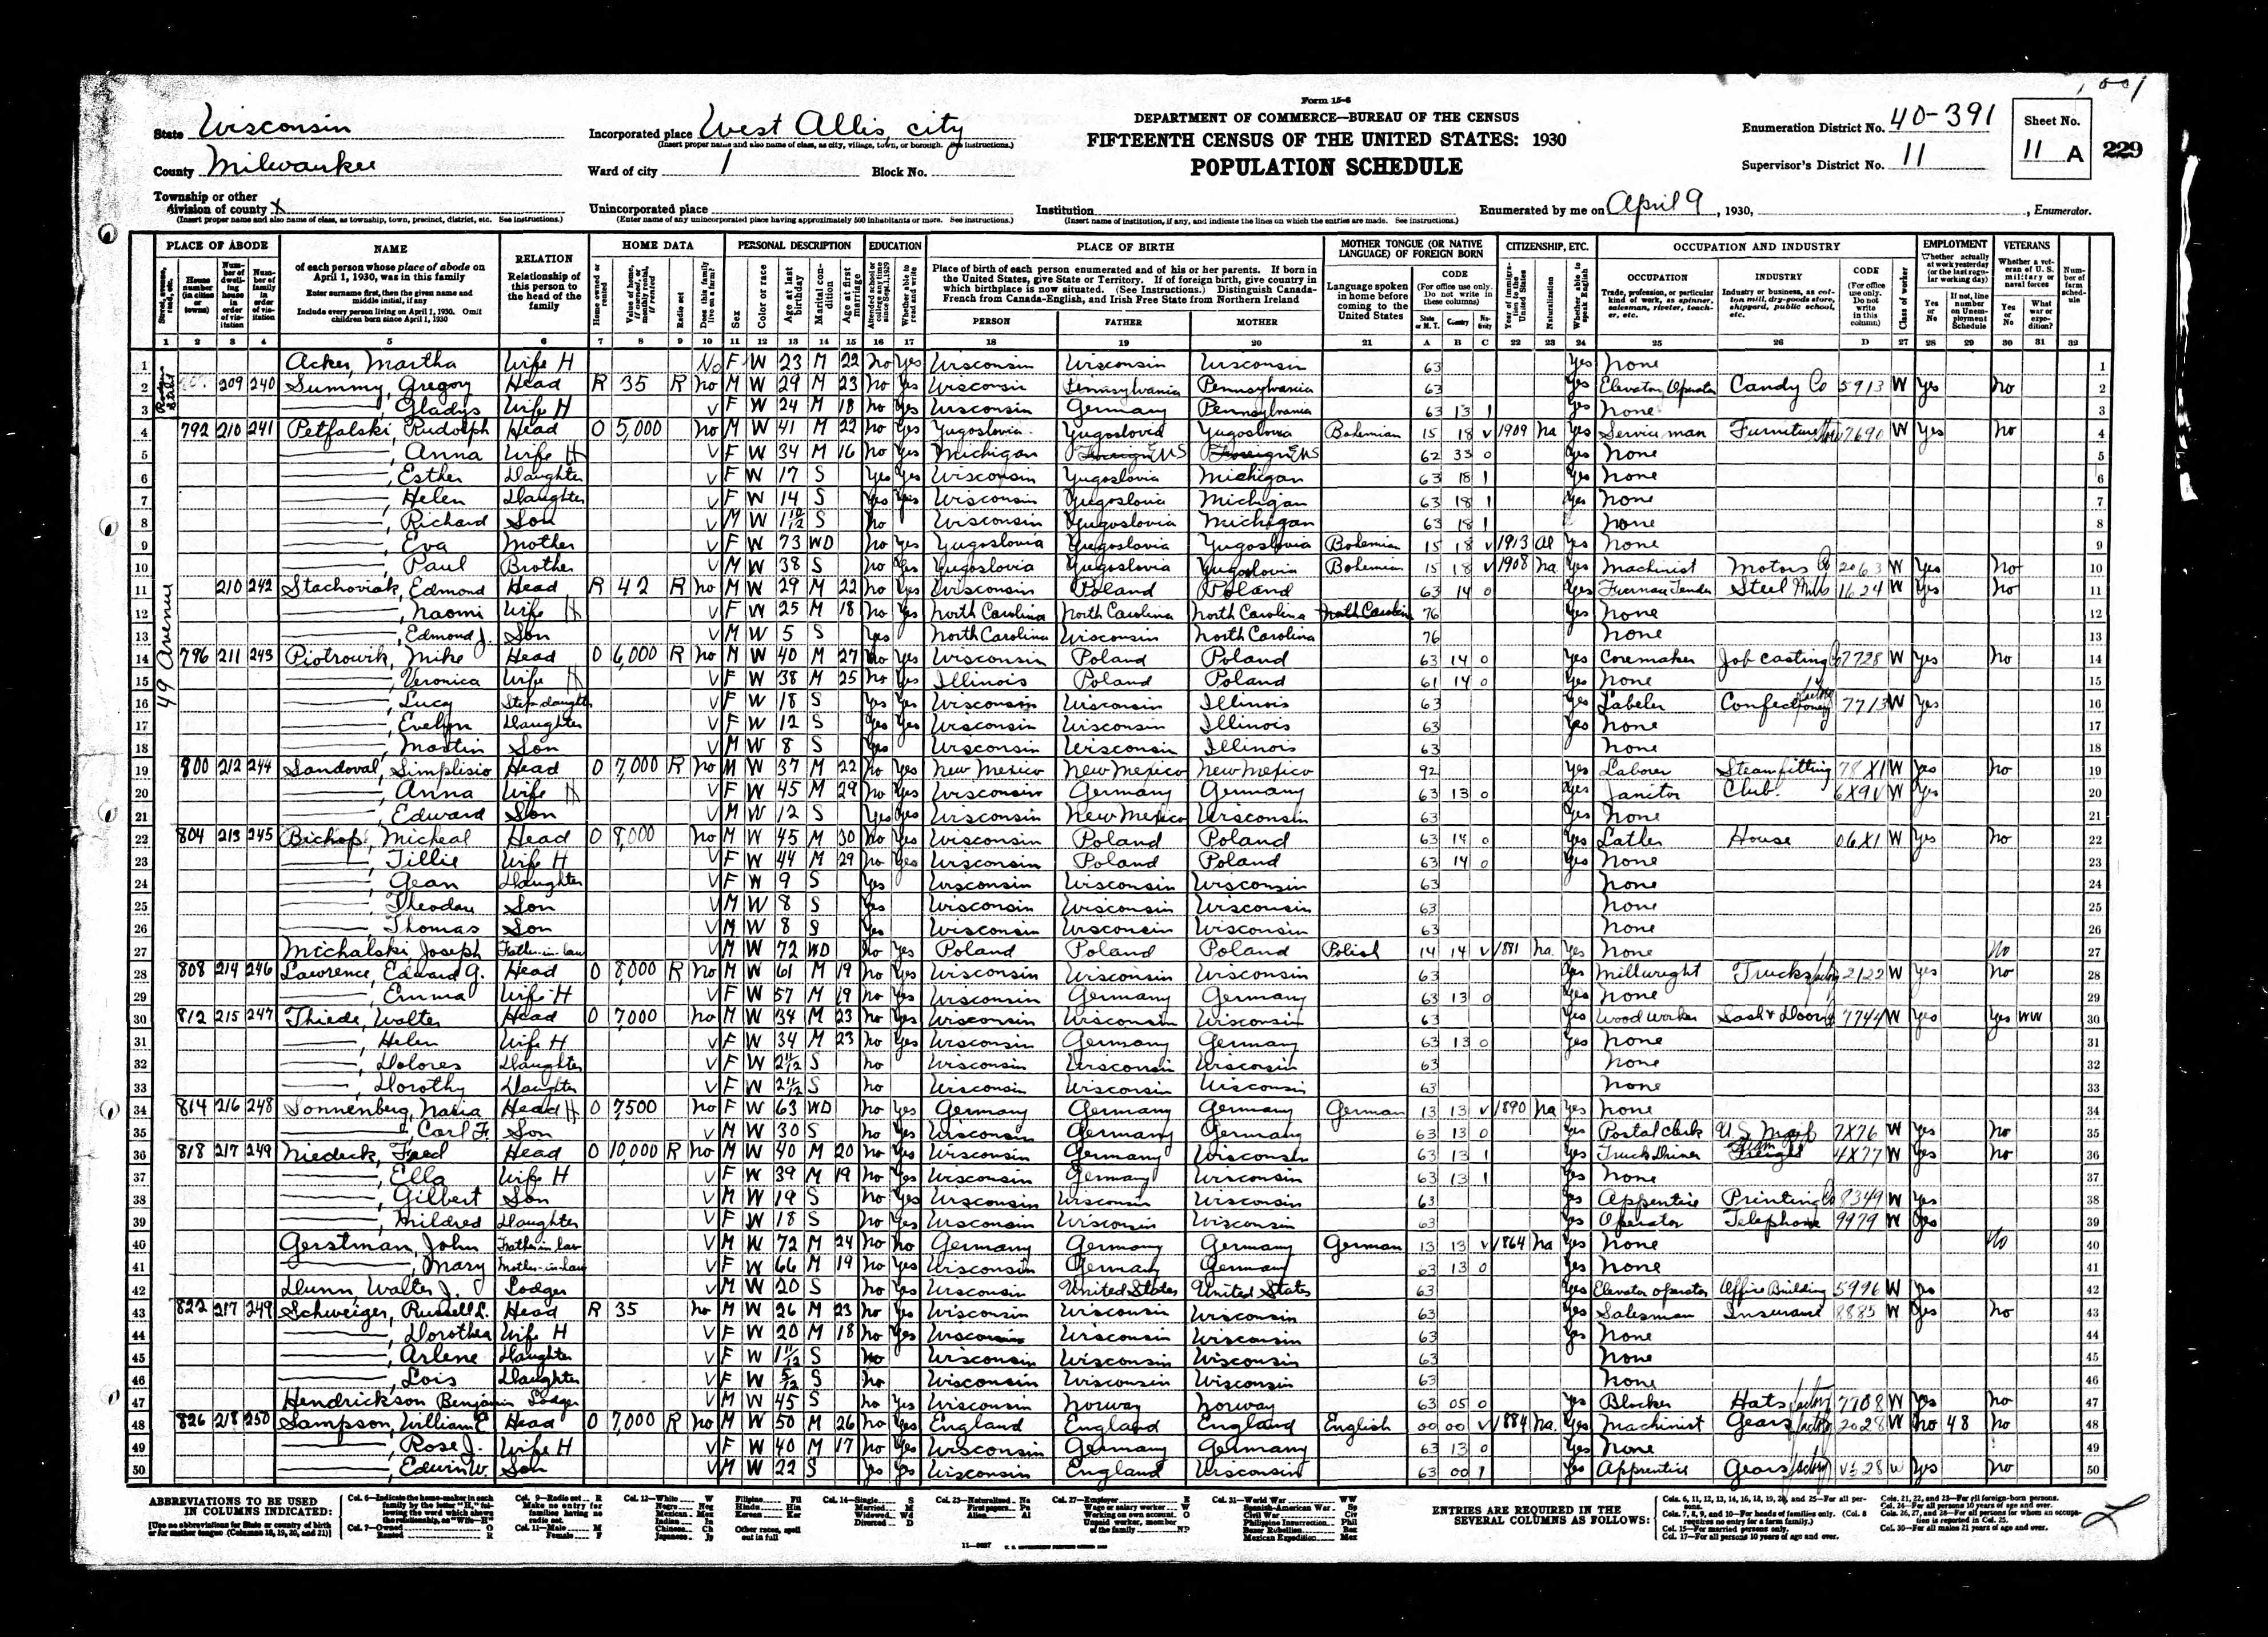 1001
Form 15-6
State Wisconsin
Incorporated place West Allis, city
(Insert proper name and also name of class, as city, village, town, or borough. See instructions.)
DEPARTMENT OF COMMERCE—BUREAU OF THE CENSUS
FIFTEENTH CENSUS OF THE UNITED STATES: 1930
POPULATION SCHEDULE
Enumeration District No. 40-391
Sheet No.
11 A
229
County Milwaukee
Ward of city 1
Block No.
Supervisor's District No. 11
Township or other division of county X
(Insert proper name and also name of class, as township, town, precinct, district, etc. See instructions.)
Unincorporated place
(Enter name of any unincorporated place having approximately 500 inhabitants or more. See instructions.)
Institution
(Insert name of institution, if any, and indicate the lines on which the entries are made. See instructions.)
Enumerated by me on April 9, 1930, , Enumerator.
PLACE OF ABODE NAME RELATION HOME DATA PERSONAL DESCRIPTION EDUCATION PLACE OF BIRTH MOTHER TONGUE (OR NATIVE LANGUAGE) OF FOREIGN BORN CITIZENSHIP, ETC. OCCUPATION AND INDUSTRY EMPLOYMENT VETERANS
1 2 3 4 5 6 7 8 9 10 11 12 13 14 15 16 17 18 19 20 21 A B C 22 23 24 25 26 D 27 28 29 30 31 32
49 Avenue
1 Acker, Martha Wife H No F W 23 M 22 No Yes Wisconsin Wisconsin Wisconsin 63 Yes None 1
2 209 240 Summy, Gregory Head R 35 R No M W 29 M 23 No Yes Wisconsin Pennsylvania Pennsylvania 63 Yes Elevator Operator Candy Co 5913 W Yes No 2
3 ——, Gladys Wife H V F W 24 M 18 No Yes Wisconsin Germany Pennsylvania 63 13 1 Yes None 3
4 792 210 241 Petfalski, Rudolph Head O 5,000 No M W 41 M 22 No Yes Yugoslovia Yugoslovia Yugoslovia Bohemian 15 18 V 1909 Na Yes Service man Furniture 7690 W Yes No 4
5 ——, Anna Wife H V F W 34 M 16 No Yes Michigan 62 33 0 Yes None 5
6 ——, Esther Daughter V F W 17 S Yes Yes Wisconsin Yugoslovia Michigan 63 18 1 Yes None 6
7 ——, Helen Daughter V F W 14 S Yes Yes Wisconsin Yugoslovia Michigan 63 18 1 Yes None 7
8 ——, Richard Son V M W 1 10/12 S No Wisconsin Yugoslovia Michigan 63 18 1 None 8
9 ——, Eva Mother V F W 73 WD No Yes Yugoslovia Yugoslovia Yugoslovia Bohemian 15 18 V 1913 Al Yes None 9
10 ——, Paul Brother V M W 38 S No Yes Yugoslovia Yugoslovia Yugoslovia Bohemian 15 18 V 1908 Na Yes Machinist Motors Co 2063 W Yes No 10
11 210 242 Stachoviak, Edmond Head R 42 R No M W 29 M 22 No Yes Wisconsin Poland Poland 63 14 0 Yes Furnace Tender Steel Mills 1624 W Yes No 11
12 ——, Naomi Wife H V F W 25 M 18 No Yes North Carolina North Carolina North Carolina North Carolina 76 Yes None 12
13 ——, Edmond J. Son V M W 5 S Yes North Carolina Wisconsin North Carolina 76 None 13
14 796 211 243 Piotrowik, Mike Head O 6,000 R No M W 40 M 27 No Yes Wisconsin Poland Poland 63 14 0 Yes Coremaker Job Casting 7728 W Yes No 14
15 ——, Veronica Wife H V F W 38 M 25 No Yes Illinois Poland Poland 61 14 0 Yes None 15
16 ——, Lucy Step daughter V F W 18 S Yes Yes Wisconsin Wisconsin Illinois 63 Yes Labeler Confectionery factory 7713 W Yes 16
17 ——, Evelyn Daughter V F W 12 S Yes Yes Wisconsin Wisconsin Illinois 63 Yes None 17
18 ——, Martin Son V M W 8 S Yes Wisconsin Wisconsin Illinois 63 None 18
19 800 212 244 Sandoval, Simplisio Head O 7,000 R No M W 37 M 22 No Yes New Mexico New Mexico New Mexico 92 Yes Laborer Steamfitting 78X1 W Yes No 19
20 ——, Anna Wife H V F W 45 M 29 No Yes Wisconsin Germany Germany 63 13 0 Yes Janitor Club 6X9V W Yes 20
21 ——, Edward Son V M W 12 S Yes Yes Wisconsin New Mexico Wisconsin 63 Yes None 21
22 804 213 245 Bichop, Micheal Head O 8,000 No M W 45 M 30 No Yes Wisconsin Poland Poland 63 14 0 Yes Lather House 06X1 W Yes No 22
23 ——, Tillie Wife H V F W 44 M 29 No Yes Wisconsin Poland Poland 63 14 0 Yes None 23
24 ——, Gean Daughter V F W 9 S Yes Wisconsin Wisconsin Wisconsin 63 None 24
25 ——, Theodore Son V M W 8 S Yes Wisconsin Wisconsin Wisconsin 63 None 25
26 ——, Thomas Son V M W 8 S Yes Wisconsin Wisconsin Wisconsin 63 None 26
27 Michalski, Joseph Father-in-law V M W 72 WD No Yes Poland Poland Poland Polish 14 14 V 1881 Na Yes None No 27
28 808 214 246 Lawrence, Edward G. Head O 8,000 R No M W 61 M 19 No Yes Wisconsin Wisconsin Wisconsin 63 Yes Millwright Trucks factory 2122 W Yes No 28
29 ——, Emma Wife H V F W 57 M 19 No Yes Wisconsin Germany Germany 63 13 0 Yes None 29
30 812 215 247 Thiede, Walter Head O 7,000 No M W 34 M 23 No Yes Wisconsin Wisconsin Wisconsin 63 Yes Wood worker Sash & Door 7744 W Yes Yes WW 30
31 ——, Helen Wife H V F W 34 M 23 No Yes Wisconsin Germany Germany 63 13 0 Yes None 31
32 ——, Dolores Daughter V F W 2 11/12 S No Wisconsin Wisconsin Wisconsin 63 None 32
33 ——, Dorothy Daughter V F W 2 11/12 S No Wisconsin Wisconsin Wisconsin 63 None 33
34 814 216 248 Sonnenberg, Maria Head H O 7,500 No F W 63 WD No Yes Germany Germany Germany German 13 13 V 1890 Na Yes None 34
35 ——, Carl F. Son V M W 30 S No Yes Wisconsin Germany Germany 63 13 0 Yes Postal Clerk U.S. Mail 7X76 W Yes No 35
36 818 217 249 Niedeck, Fred Head O 10,000 R No M W 40 M 20 No Yes Wisconsin Germany Wisconsin 63 13 1 Yes Truck Driver 4X77 W Yes No 36
37 ——, Ella Wife H V F W 39 M 19 No Yes Wisconsin Germany Wisconsin 63 13 1 Yes None 37
38 ——, Gilbert Son V M W 19 S No Yes Wisconsin Wisconsin Wisconsin 63 Yes Apprentice Printing Co 8349 W Yes 38
39 ——, Mildred Daughter V F W 18 S No Yes Wisconsin Wisconsin Wisconsin 63 Yes Operator Telephone 9979 W Yes 39
40 Gerstman, John Father in law V M W 72 M 24 No No Germany Germany Germany German 13 13 V 1864 Na Yes None No 40
41 ——, Mary Mother-in-law V F W 66 M 19 No Yes Wisconsin Germany Germany 63 13 0 Yes None 41
42 Dunn, Walter J. Lodger V M W 20 S No Yes Wisconsin United States United States 63 Yes Elevator operator Office Building 5996 W Yes 42
43 822 217 249 Schweiger, Russell L. Head R 35 No M W 26 M 23 No Yes Wisconsin Wisconsin Wisconsin 63 Yes Salesman Insurance 8885 W Yes No 43
44 ——, Dorothea Wife H V F W 20 M 18 No Yes Wisconsin Wisconsin Wisconsin 63 Yes None 44
45 ——, Arlene Daughter V F W 1 11/12 S No Wisconsin Wisconsin Wisconsin 63 None 45
46 ——, Lois Daughter V F W 5/12 S No Wisconsin Wisconsin Wisconsin 63 None 46
47 Hendrickson Benjamin Lodger V M W 45 S No Yes Wisconsin Norway Norway 63 05 0 Yes Blocker Hats factory 7708 W Yes No 47
48 826 218 250 Sampson, William E Head O 7,000 R No M W 50 M 26 No Yes England England England English 00 00 V 1884 Na. Yes Machinist Gears factory 2028 W No 48 No 48
49 ——, Rose J. Wife H V F W 40 M 17 No Yes Wisconsin Germany Germany 63 13 0 Yes None 49
50 ——, Edwin W. Son V M W 22 S Yes Yes Wisconsin England Wisconsin 63 00 1 Yes Apprentice Gears factory V528 W Yes No 50
ABBREVIATIONS TO BE USED IN COLUMNS INDICATED:
[Use no abbreviations for State or country of birth or for mother tongue (Columns 18, 19, 20, and 21)]
ENTRIES ARE REQUIRED IN THE SEVERAL COLUMNS AS FOLLOWS: